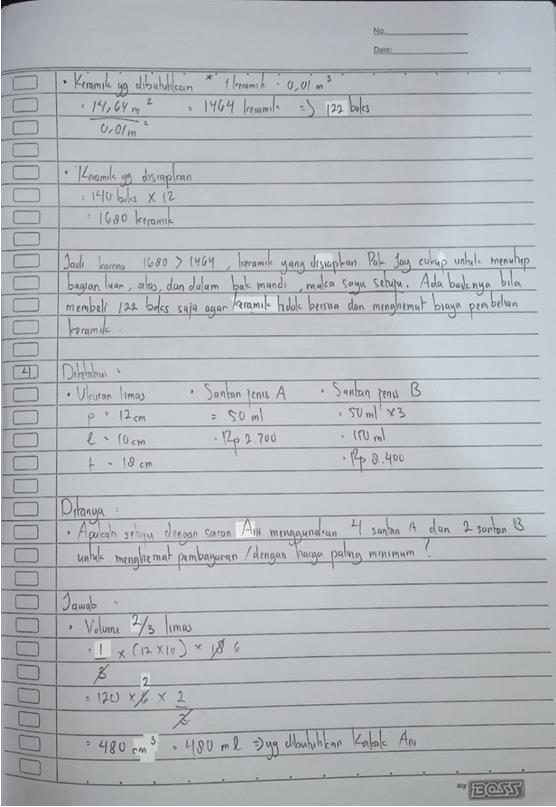 No.
Date:
• Keramik yg dibutuhkan * 1 keramik = 0,01 m³
= 14,64 m² / 0,01 m² = 1464 keramik => 122 boks
• Keramik yg disiapkan
= 140 boks x 12
= 1680 keramik
Jadi karena 1680 > 1464, keramik yang disiapkan Pak Jay cukup untuk menutup
bagian luar, atas, dan dalam bak mandi, maka saya setuju. Ada baiknya bila
membeli 122 boks saja agar keramik tidak bersisa dan menghemat biaya pembelian
keramik.
4 Diketahui :
• Ukuran limas • Santan jenis A • Santan jenis B
p = 12 cm = 50 ml = 50 ml x3
l = 10 cm = Rp 2.700 = 150 ml
t = 18 cm = Rp 8.400
Ditanya :
• Apakah setuju dengan saran Ani menggunakan 4 santan A dan 2 santan B
untuk menghemat pembayaran /dengan harga paling minimum ?
Jawab :
• Volume 2/3 limas
= 1/3 x (12 x 10) x 18 6
= 120 x 6 2 x 2/3
= 480 cm³ = 480 ml => yg dibutuhkan Kakak Ani
BOSS